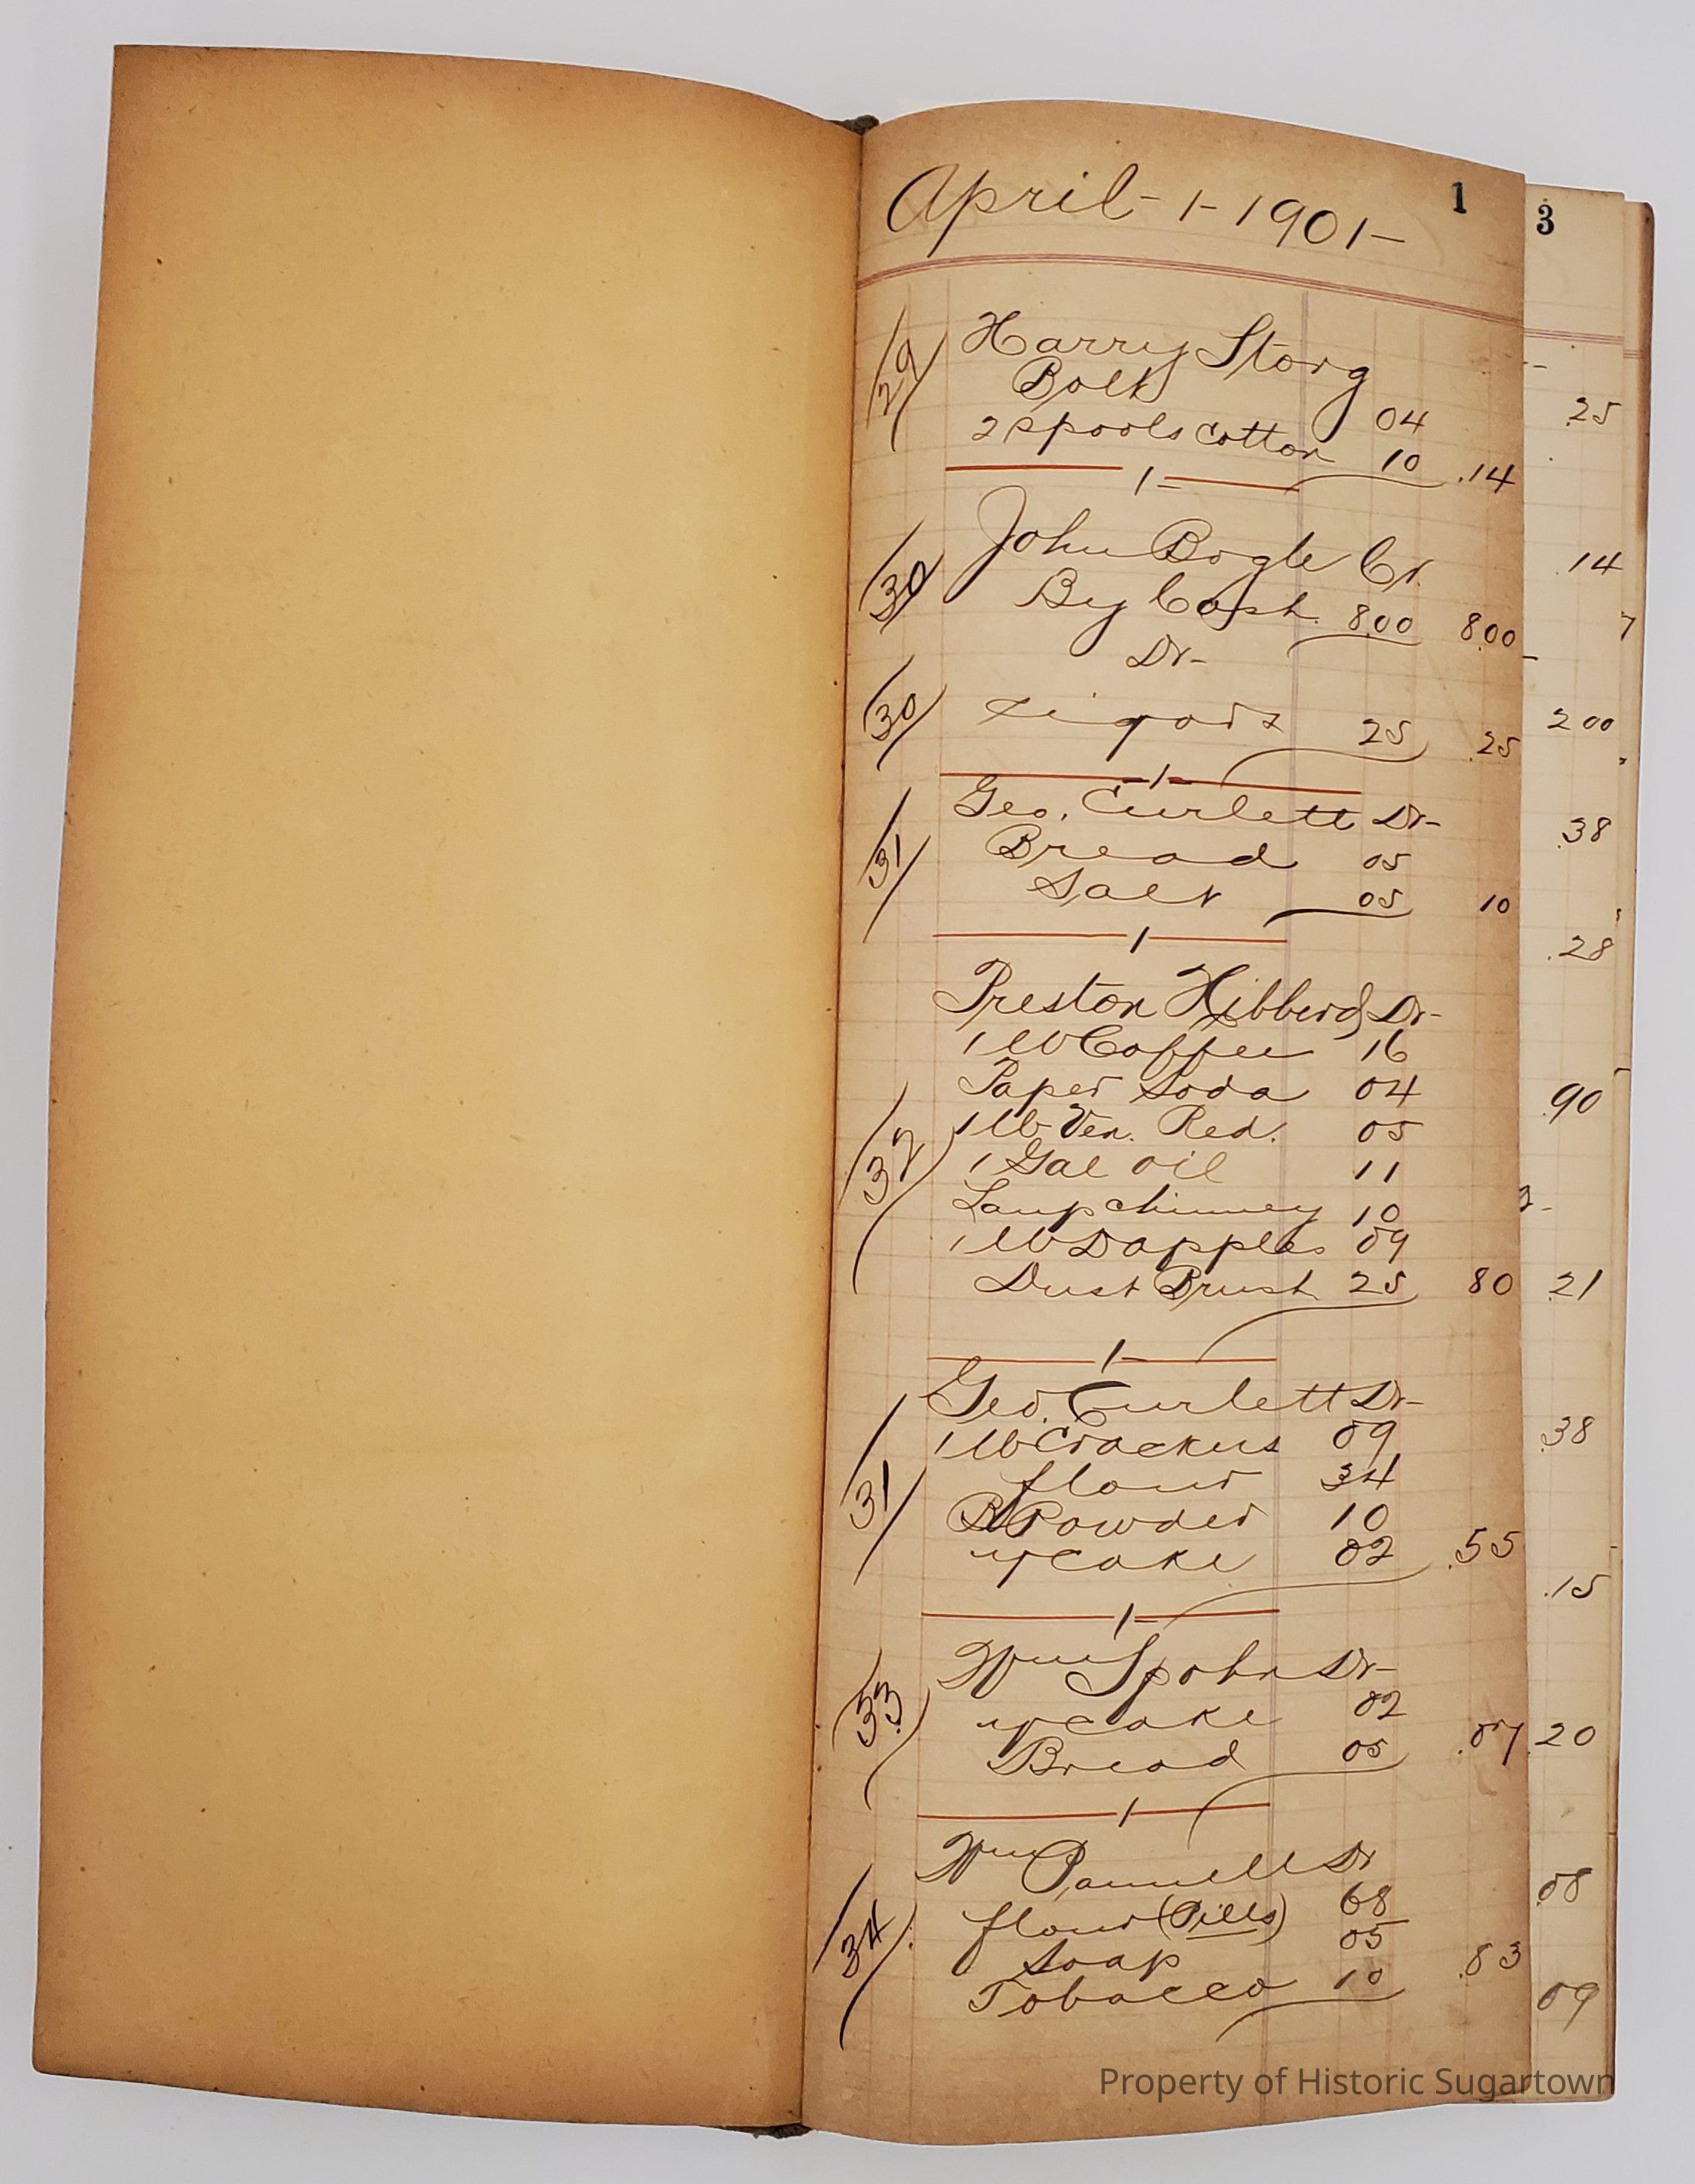 April - 1 - 1901 -
1
29
Harry Storg
Bolt 04
2 spools cotton 10 .14
1 -
30
John Bogle Cr.
By Cash. 8.00 8.00
Dr -
30
25 .25
- 1 -
31
Geo. Curlett Dr -
Bread 05
Salt 05 10
1
Preston Hibberd Dr -
1 lb Coffee 16
Paper Soda 04
32
1 lb Ven. Red. 05
1 Gal oil 11
Lamp chimney 10
1 lb D apples 09
Dust Brush 25 80
1 -
Geo. Curlett Dr -
1 lb Crackers 09
31
flour 34
B Powder 10
y cake 02 .55
1 -
33
Wm Spohn Dr -
y cake 02
Bread 05 .07
1
34
Wm Pannell Dr
flour (Pills) 68
Soap 05
Tobacco 10 .83
3
25
.14
7
200
.38
.28
.90
21
38
.15
.20
.08
09
Property of Historic Sugartown